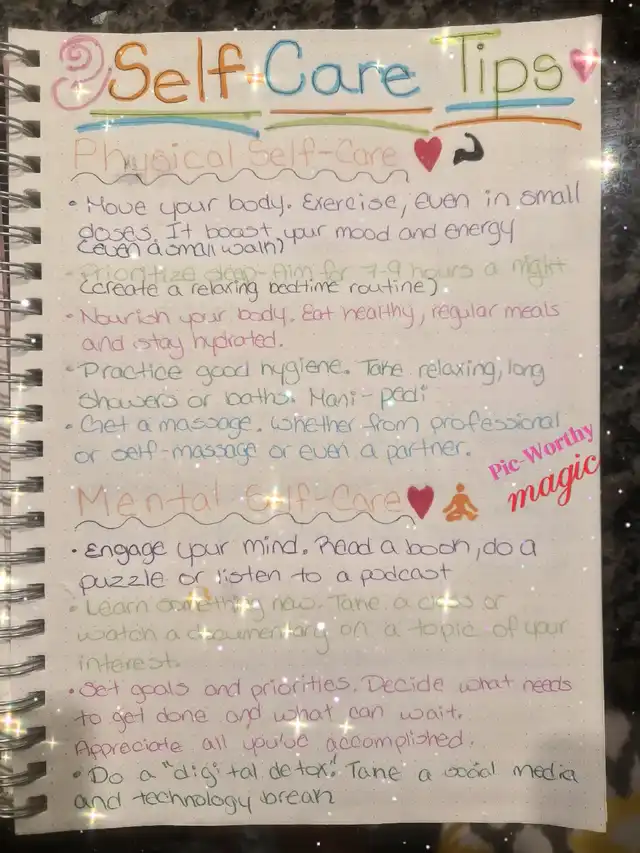 Self Care Tips
Physical Self-Care
• Move your body. Exercise, even in small
doses. It boast your mood and energy
(even a small walk)
• Prioritize sleep- Aim for 7-9 hours a night
(create a relaxing bedtime routine).
• Nourish your body. Eat healthy, regular meals
and stay hydrated.
• Practice good hygiene. Take relaxing, long
showers or baths. Mani-pedi
• Get a massage. Whether from professional
or self-massage or even a partner.
Pic-Worthy
magic
Mental Self-Care
• Engage your mind. Read a book, do a
puzzle or listen to a podcast
• Learn something new. Take a class or
watch a documentary on a topic of your
interest.
• Set goals and priorities. Decide what needs
to get done and what can wait.
Appreciate all you've accomplished.
• Do a "digital detox". Take a social media
and technology break